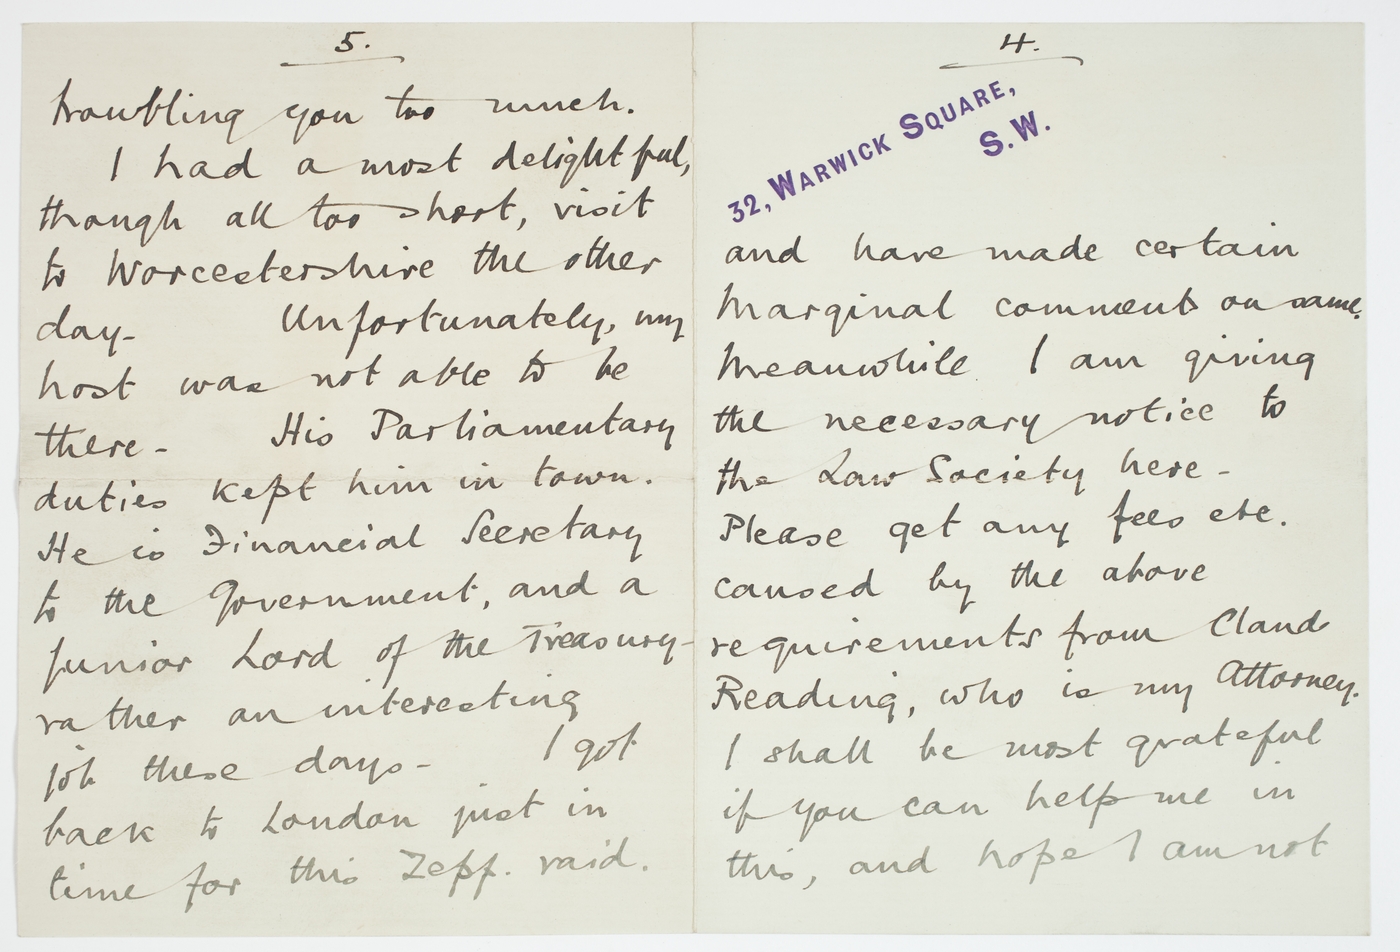 4.
32, WARWICK SQUARE,
S.W.
and have made certain
marginal comments on same.
Meanwhile I am giving
the necessary notice to
the Law Society here -
Please get any fees etc.
caused by the above
requirements from Claud
Reading, who is my Attorney.
I shall be most grateful
if you can help me in
this, and hope I am not
5.
troubling you too much.
I had a most delightful,
though all too short, visit
to Worcestershire the other
day - Unfortunately, my
host was not able to be
there - His Parliamentary
duties kept him in town.
He is Financial Secretary
to the Government, and a
Junior Lord of the Treasury -
rather an interesting
job these days - I got
back to London just in
time for this Zepp. raid.